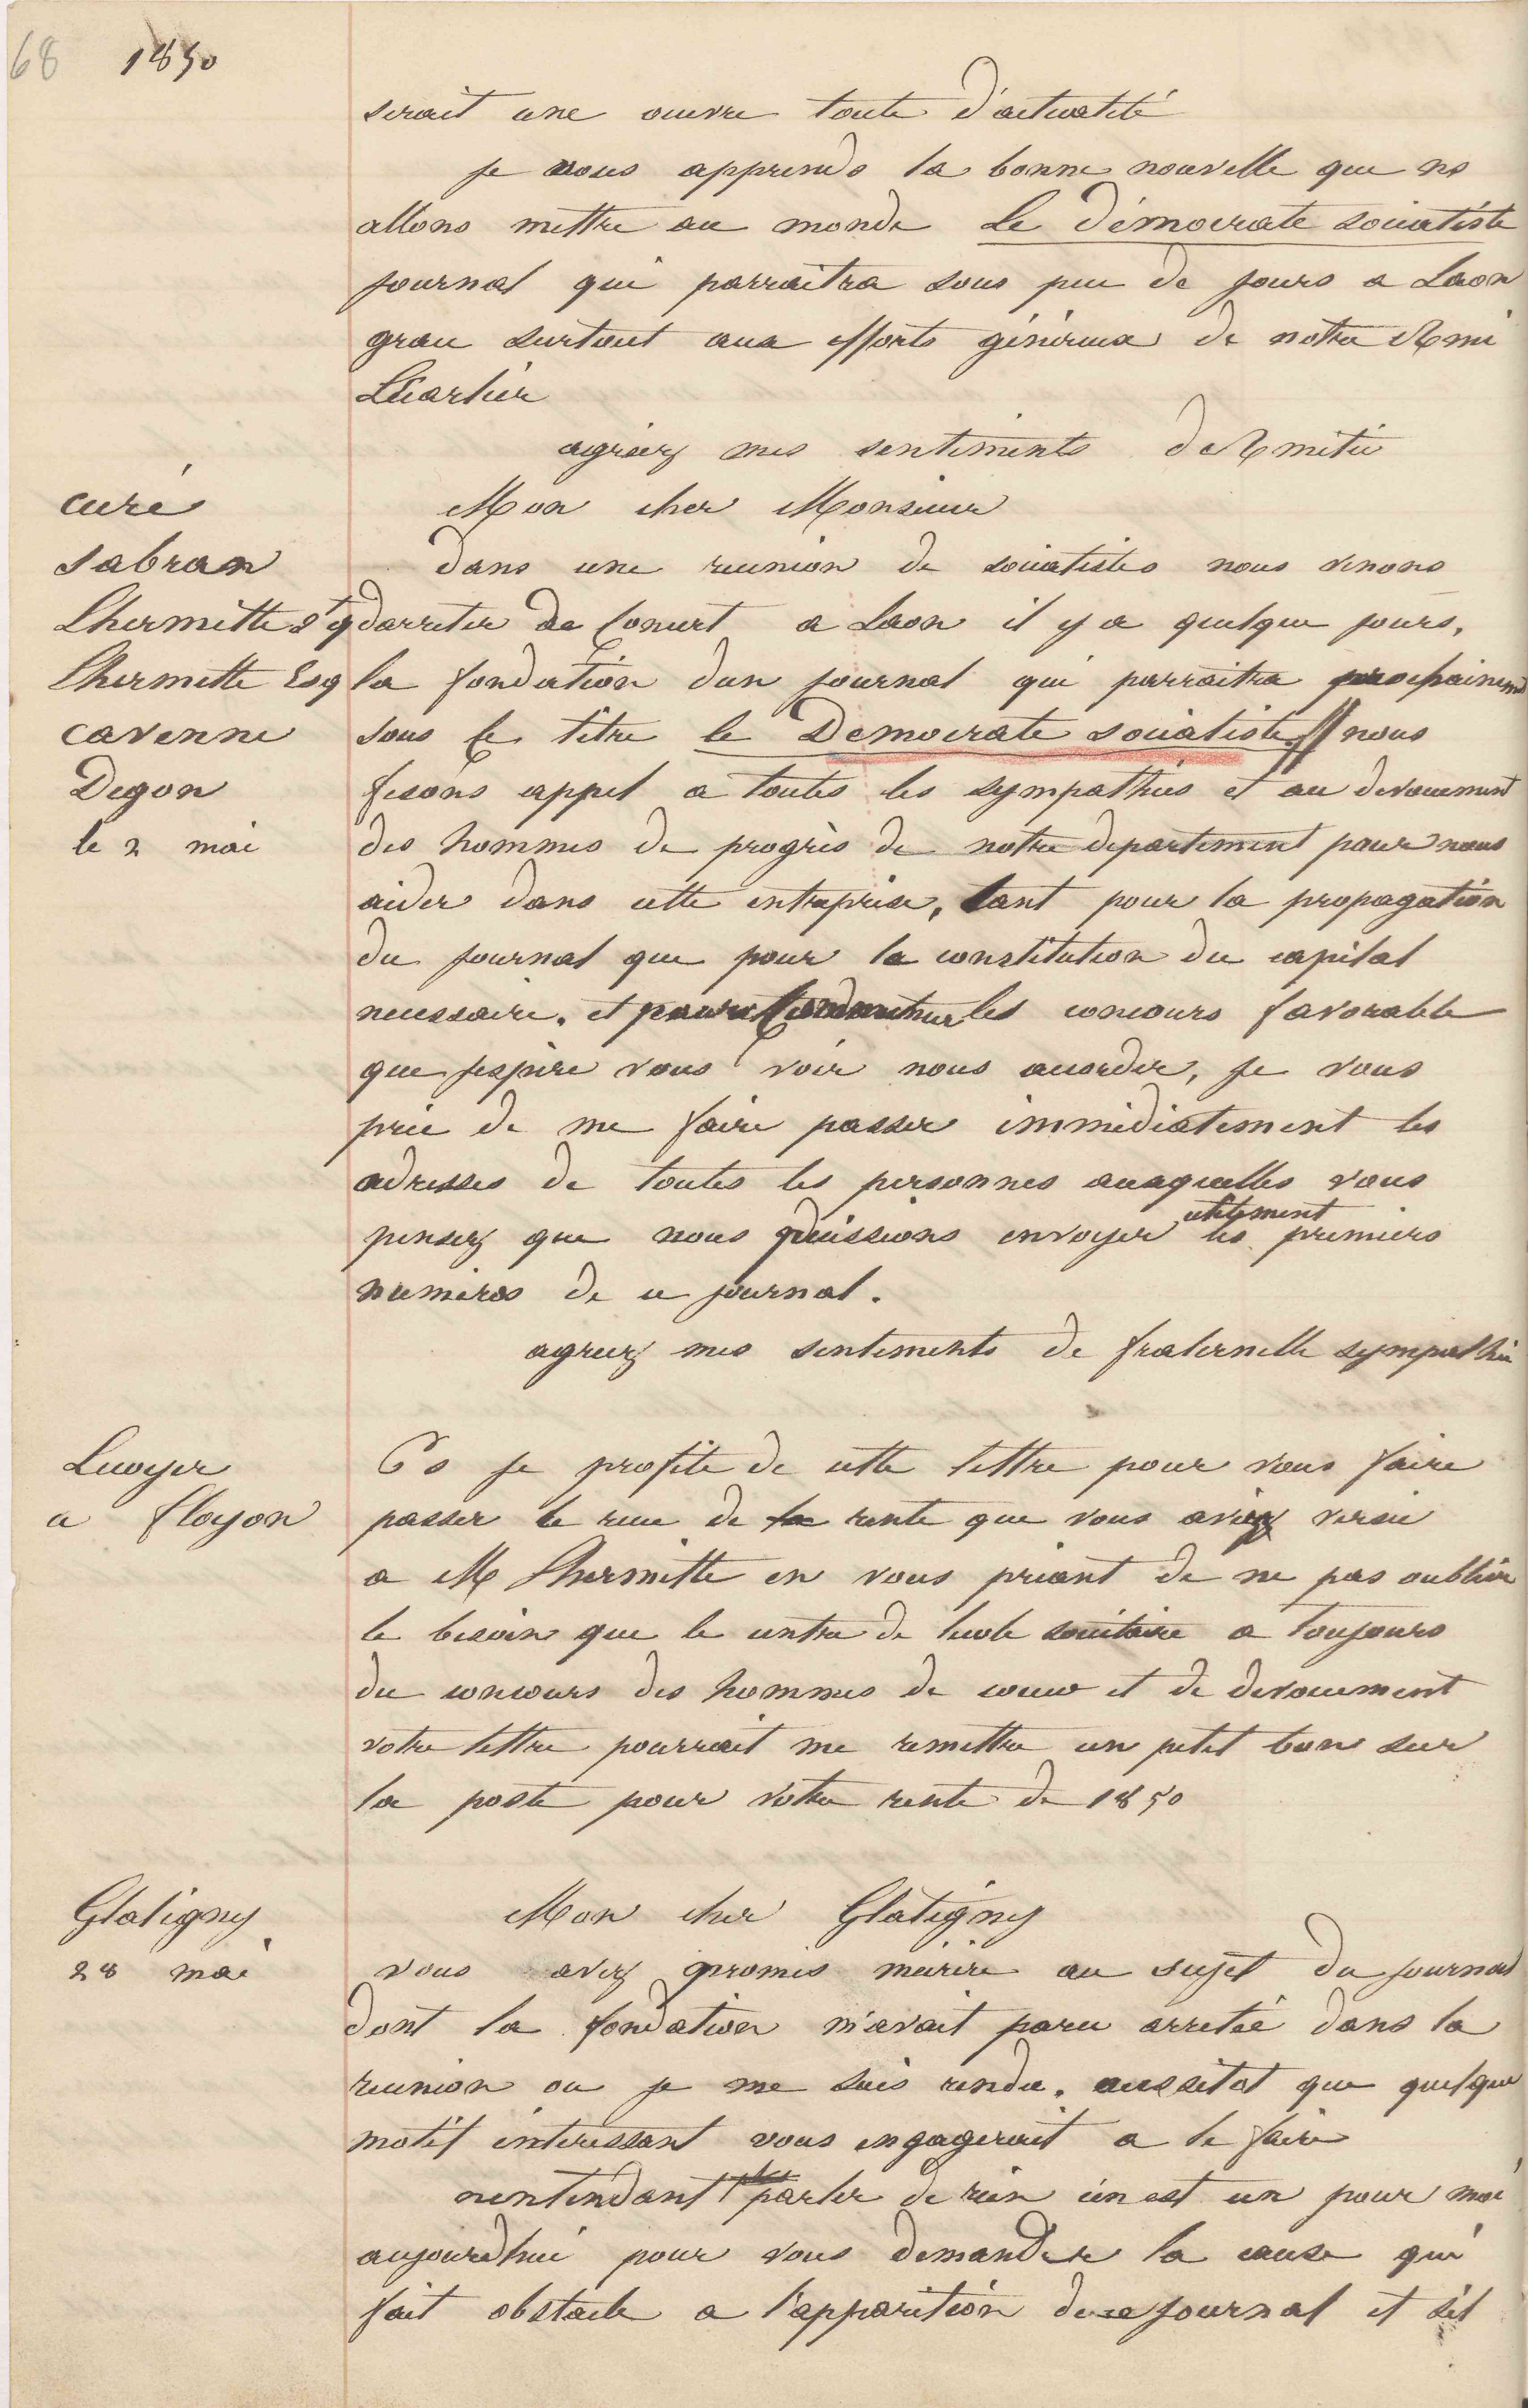 68 1850
serait une ouvre toute d'actualité
je vous apprends la bonne nouvelle que ns
allons mettre au monde Le démocrate socialiste
journal qui parraitra sous peu de jours a Laon
grace surtout aux efforts généreux de notre Ami
Lécarlier
agréez mes sentiments d'Amitié
curé
Mon cher Monsieur
sabran
dans une reunion de socialistes nous venons
Lhermitte St q
darreter de Concert a Laon il y a quelque jours,
Lhermitte Esq
la fondation dun journal qui parraitra prochainemt
cavenne
sous le titre le Democrate socialiste // nous
Degon
fesons appel a toutes les sympathies et au devouement
le 2 mai
des hommes de progrès de notre departement pour nous
aider dans cette entreprise, tant pour la propagation
du journal que pour la constitution du capital
necessaire. et les concours favorable
que jespere vous voir nous accorder, je vous
prie de me faire passer immédiatement les
adresses de toutes les personnes auxquelles vous
pensez que nous puissions envoyer utilement les premiers
numéros de ce journal.
agreez mes sentiments de fraternelle sympathie
Lecoyer
Ps je profite de cette lettre pour vous faire
a floyon
passer le recu de la rente que vous aviez versée
a M Lhermitte en vous priant de ne pas oublier
le besoin que le centre de lecole socitaire a toujours
du concours des hommes de coeur et de devouement
votre lettre pourrait me remettre un petit bon sur
la poste pour votre rente de 1850
Glatigny
Mon cher Glatigny
28 mai
vous avez promis mécrire au sujet du journal
dont la fondation m'avait paru arretée dans la
reunion ou je me suis rendu. aussitot que quelque
motif interessant vous engagerait a le faire
nentendant plus parler de rien cen est un pour moi
aujourdhui pour vous demander la cause qui
fait obstacle a l'apparition de ce journal et sil